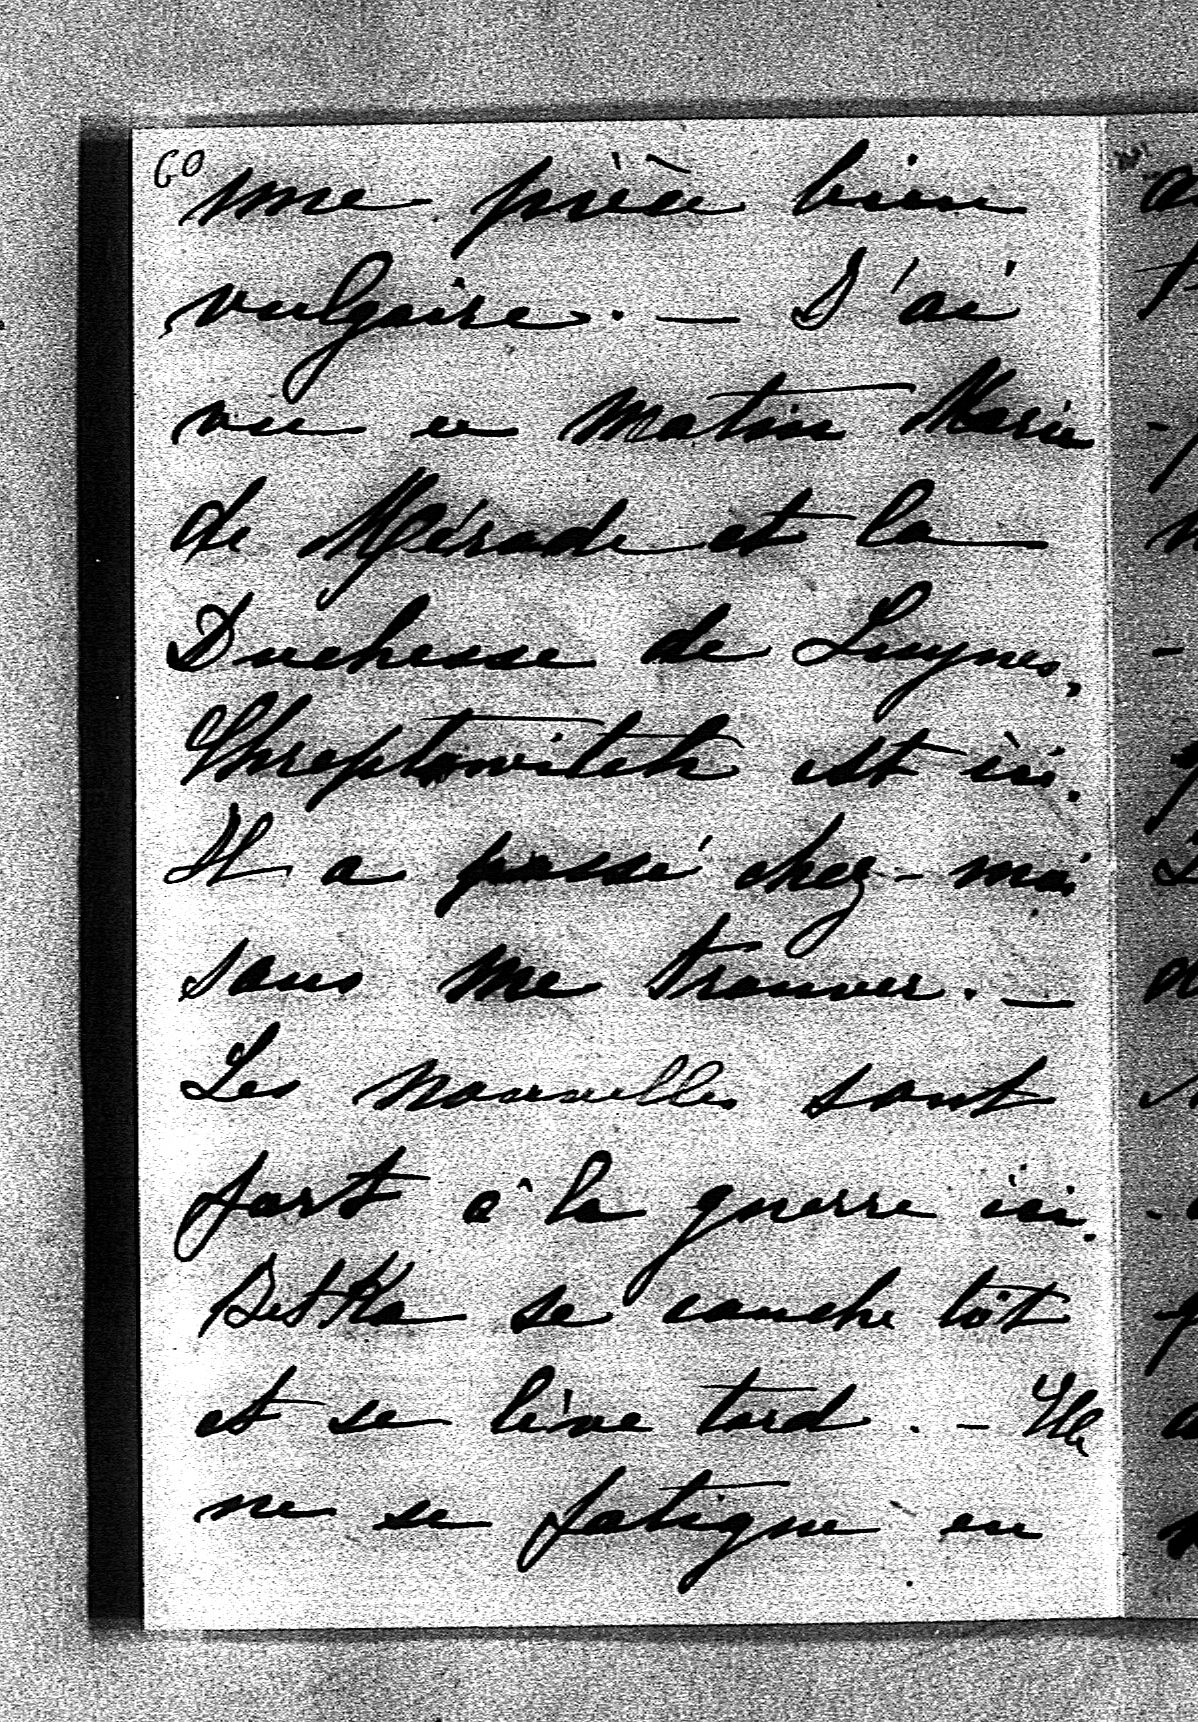 60
une pièce bien
vulgaire. — J'ai
vu ce matin Marie
de Mérode et la
Duchesse de Luynes.
Chreptowitch est ici.
Il a passé chez-moi
sans me trouver. —
Les nouvelles sont
fort à la guerre ici.
Betka se couche tôt
et se lève tard. — Elle
ne se fatigue en